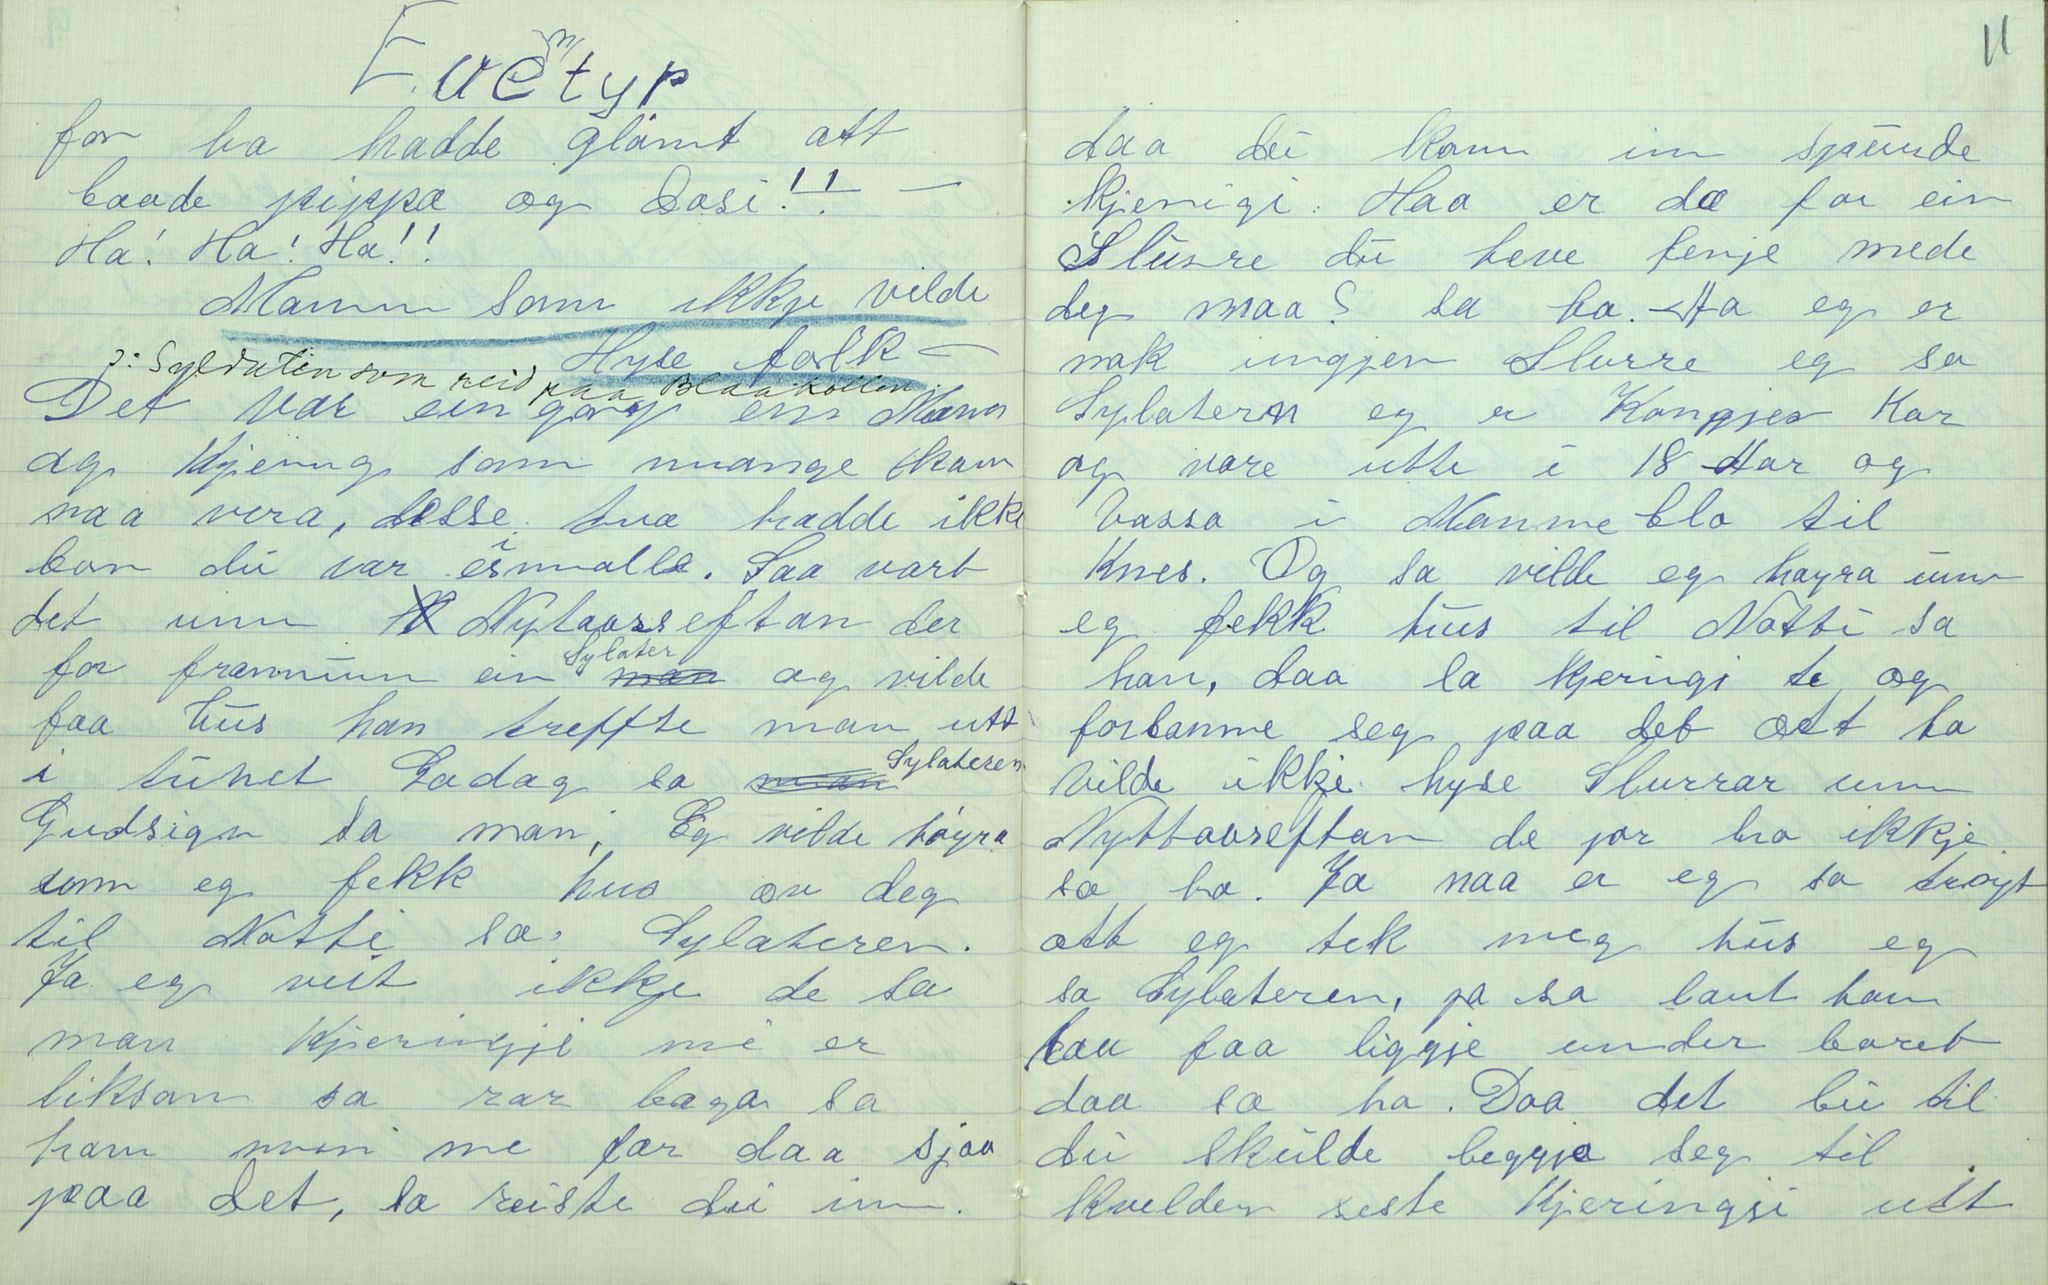 Eventyr
for ho hadde glömt att
baade pippa og Dosi!! —
Ha! Ha! Ha!!
Mannen som ikkje vilde
Hyse folk —
ɔ: Syldaten som reid paa Blaakollen.
Det var eingong ein Mann
og Kjering som mange kan
naa vera, desse tvo hadde ikke
bon dù var eismalle. Saa vart
det umm Nytaarseftan der
for frammùm ein Sylater og vilde
faa hùs han treffte man utt
i tùnet Godag sa Sylateren
Gudsign sa man; Eg vilde höyra
umm eg fekk hus av deg
til Notti sa Sylateren.
Ja eg veit ikkje de sa
man Kjeringji mi er
liksom so rar baga sa
han men me fær daa sjaa
paa det, sa reiste dùi inn.
11
daa dùi kom inn spùùrde
kjeringi. Haa er dæ for ein
Slùsre dù heve fenje mede
deg maa? sa ho. Aa eg er
nok ingjen Slurre eg sa
Sylatern eg er Kongjes Kar
og vore utte i 18 Aar og
Vassa i Manneblo til
Knes. Og so vilde eg høyra ùm
eg fekk hùùs til Notti sa
han, daa la kjeringi te og
forbanne seg paa det att ho
vilde ikkje hyse Slurrar um
Nyttaarseftan de jor ho ikkje
sa ho. Ja naa er eg so trøyt
att eg tek meg hùs eg
sa Sylateren, ja sa laut han
daa faa liggje under boret
daa sa ho. Daa det lei til
dùi skùlde leggja seg til
kvelden seste Kjeringji utt